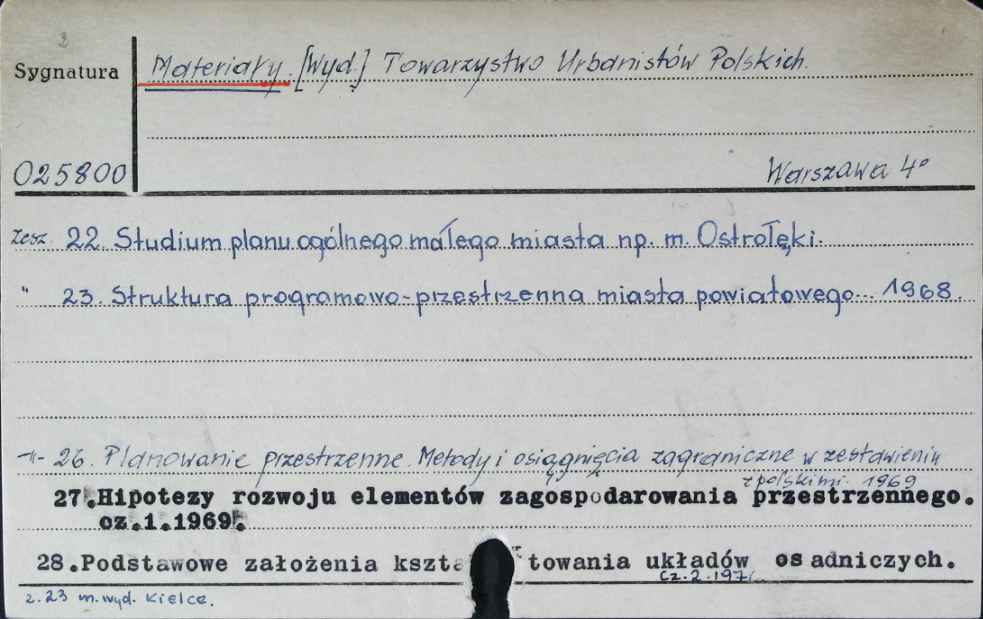 2
Sygnatura
Materiały. [Wyd.] Towarzystwo Urbanistów Polskich.
025800
Warszawa 4°
zesz. 22. Studium planu ogólnego małego miasta np. m. Ostrołęki.
" 23. Struktura programowo-przestrzenna miasta powiatowego... 1968.
-"- 26. Planowanie przestrzenne. Metody i osiągnięcia zagraniczne w zestawieniu
z polskimi. 1969
27.Hipotezy rozwoju elementów zagospodarowania przestrzennego.
cz.1.1969.
28.Podstawowe założenia kształtowania układów osadniczych.
cz. 2.
z. 23 m. wyd. Kielce.